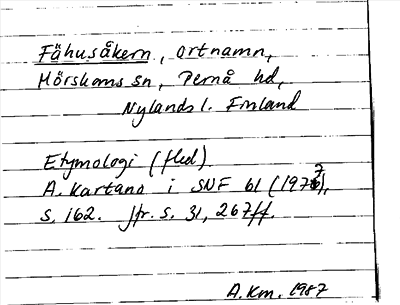 Fähusåkern, ortnamn,
Mörskoms sn, Pernå hd,
Nylands l. Finland
Etymologi (fled).
A. Kartano i SNF 61 (1977),
s. 162. Jfr. s. 31, 267ff.
A.Km. 1987